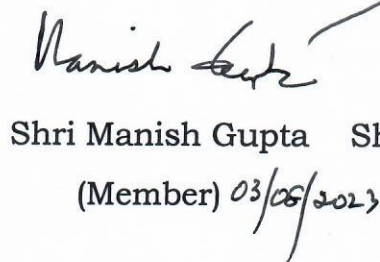 Manish Gupta
Shri Manish Gupta Sh
(Member) 03/08/2023